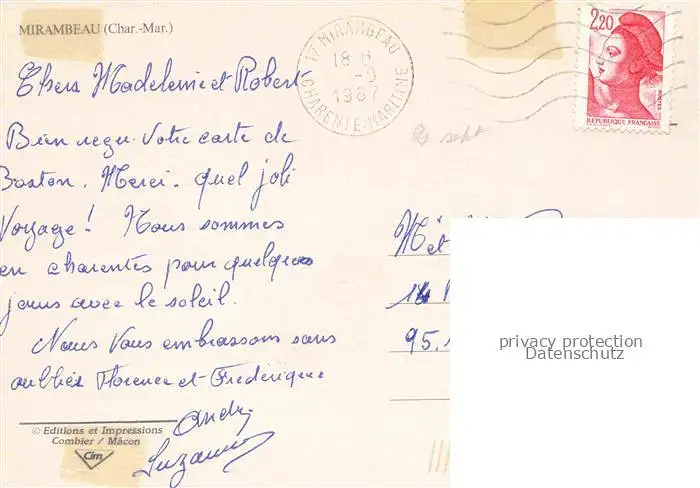 MIRAMBEAU (Char.-Mar.)
17 MIRAMBEAU
18 H
1987
CHARENTE-MARITIME
2,20
POSTES
REPUBLIQUE FRANÇAISE
Chers Madeleine et Robert
Bien reçu votre carte de
Boston. Merci. quel joli
Voyage! Nous sommes
en charentes pour quelques
jours avec le soleil.
Nous Vous embrassons sans
oublier Florence et Frédérique
André
Suzanne
sept
M et
14
95.1
privacy protection
Datenschutz
© Editions et Impressions
Combier / Mâcon
Cim